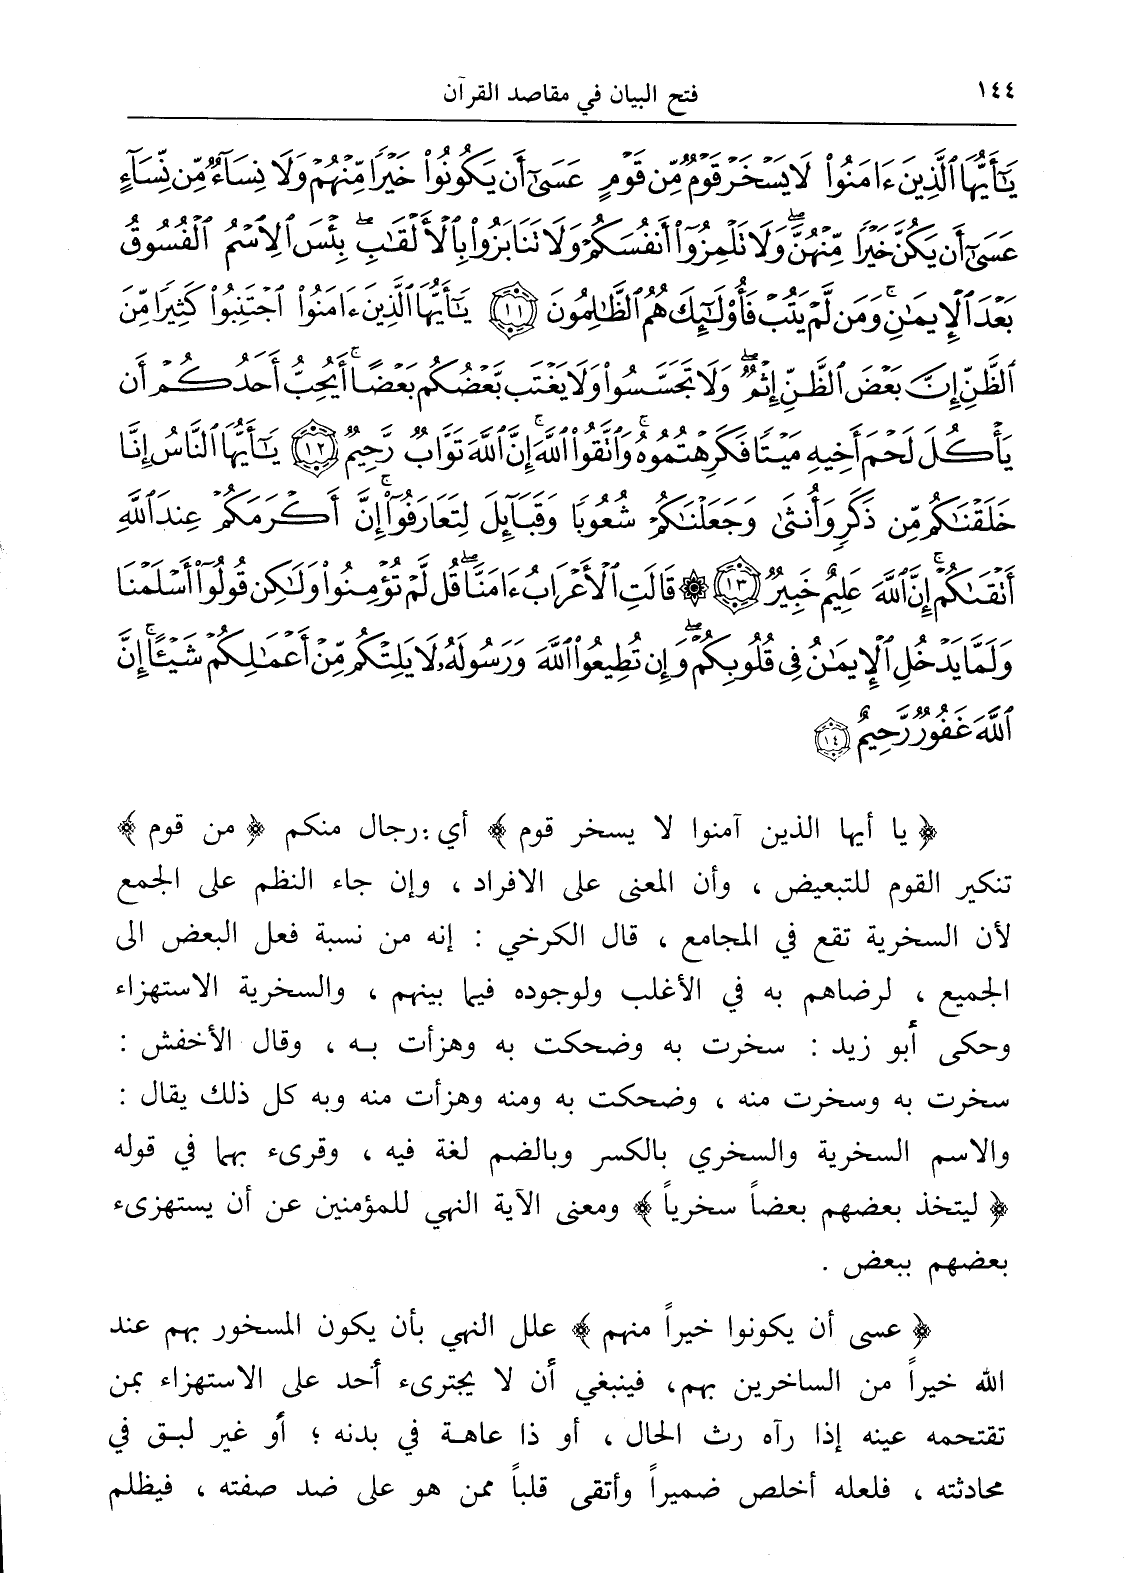 ١٤٤
فتح البيان في مقاصد القرآن
يَٰٓأَيُّهَا ٱلَّذِينَ ءَامَنُوا۟ لَا يَسْخَرْ قَوْمٌ مِّن قَوْمٍ عَسَىٰٓ أَن يَكُونُوا۟ خَيْرًا مِّنْهُمْ وَلَا نِسَآءٌ مِّن نِّسَآءٍ
عَسَىٰٓ أَن يَكُنَّ خَيْرًا مِّنْهُنَّ ۖ وَلَا تَلْمِزُوٓا۟ أَنفُسَكُمْ وَلَا تَنَابَزُوا۟ بِٱلْأَلْقَٰبِ ۖ بِئْسَ ٱلِٱسْمُ ٱلْفُسُوقُ
بَعْدَ ٱلْإِيمَٰنِ ۚ وَمَن لَّمْ يَتُبْ فَأُو۟لَٰٓئِكَ هُمُ ٱلظَّٰلِمُونَ ١١ يَٰٓأَيُّهَا ٱلَّذِينَ ءَامَنُوا۟ ٱجْتَنِبُوا۟ كَثِيرًا مِّنَ
ٱلظَّنِّ إِنَّ بَعْضَ ٱلظَّنِّ إِثْمٌ ۖ وَلَا تَجَسَّسُوا۟ وَلَا يَغْتَب بَّعْضُكُم بَعْضًا ۚ أَيُحِبُّ أَحَدُكُمْ أَن
يَأْكُلَ لَحْمَ أَخِيهِ مَيْتًا فَكَرِهْتُمُوهُ ۚ وَٱتَّقُوا۟ ٱللَّهَ ۚ إِنَّ ٱللَّهَ تَوَّابٌ رَّحِيمٌ ١٢ يَٰٓأَيُّهَا ٱلنَّاسُ إِنَّا
خَلَقْنَٰكُم مِّن ذَكَرٍ وَأُنثَىٰ وَجَعَلْنَٰكُمْ شُعُوبًا وَقَبَآئِلَ لِتَعَارَفُوٓا۟ ۚ إِنَّ أَكْرَمَكُمْ عِندَ ٱللَّهِ
أَتْقَىٰكُمْ ۚ إِنَّ ٱللَّهَ عَلِيمٌ خَبِيرٌ ١٣ ۞ قَالَتِ ٱلْأَعْرَابُ ءَامَنَّا ۖ قُل لَّمْ تُؤْمِنُوا۟ وَلَٰكِن قُولُوٓا۟ أَسْلَمْنَا
وَلَمَّا يَدْخُلِ ٱلْإِيمَٰنُ فِى قُلُوبِكُمْ ۖ وَإِن تُطِيعُوا۟ ٱللَّهَ وَرَسُولَهُۥ لَا يَلِتْكُم مِّنْ أَعْمَٰلِكُمْ شَيْـًٔا ۚ إِنَّ
ٱللَّهَ غَفُورٌ رَّحِيمٌ ١٤
﴿ يا أيها الذين آمنوا لا يسخر قوم ﴾ أي : رجال منكم ﴿ من قوم ﴾
تنكير القوم للتبعيض ، وأن المعنى على الافراد ، وإن جاء النظم على الجمع
لأن السخرية تقع في المجامع ، قال الكرخي : إنه من نسبة فعل البعض الى
الجميع ، لرضاهم به في الأغلب ولوجوده فيما بينهم ، والسخرية الاستهزاء
وحكى أبو زيد : سخرت به وضحكت به وهزأت بـه ، وقال الأخفش :
سخرت به وسخرت منه ، وضحكت به ومنه وهزأت منه وبه كل ذلك يقال :
والاسم السخرية والسخري بالكسر وبالضم لغة فيه ، وقرىء بهما في قوله
﴿ ليتخذ بعضهم بعضاً سخرياً ﴾ ومعنى الآية النهي للمؤمنين عن أن يستهزىء
بعضهم ببعض .
﴿ عسى أن يكونوا خيراً منهم ﴾ علل النهي بأن يكون المسخور بهم عند
الله خيراً من الساخرين بهم، فينبغي أن لا يجترىء أحد على الاستهزاء بمن
تقتحمه عينه إذا رآه رث الحال ، أو ذا عاهـة في بدنه ؛ أو غير لبـق في
محادثته ، فلعله أخلص ضميراً وأتقى قلباً ممن هو على ضد صفته ، فيظلم